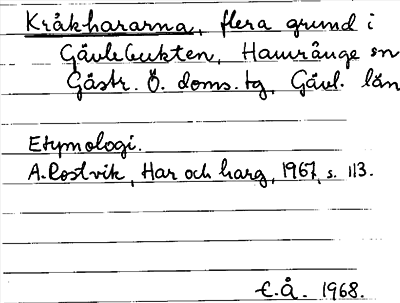 Kråkhararna, flera grund i
Gävlebukten, Hamrånge sn
Gästr. Ö. doms. tg, Gävl. län
Etymologi.
A. Rostvik, Har och harg, 1967, s. 113.
E.Å. 1968.